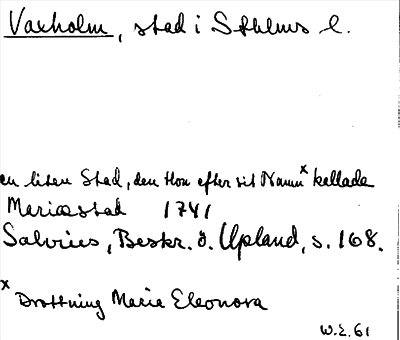 Vaxholm, stad i Sthlms l.
en liten Stad, den Hon efter sit Namnx kallade
Mariæstad 1741
Salvius, Beskr. ö. Upland, s. 168.
x Drottning Maria Eleonora
W.E. 61